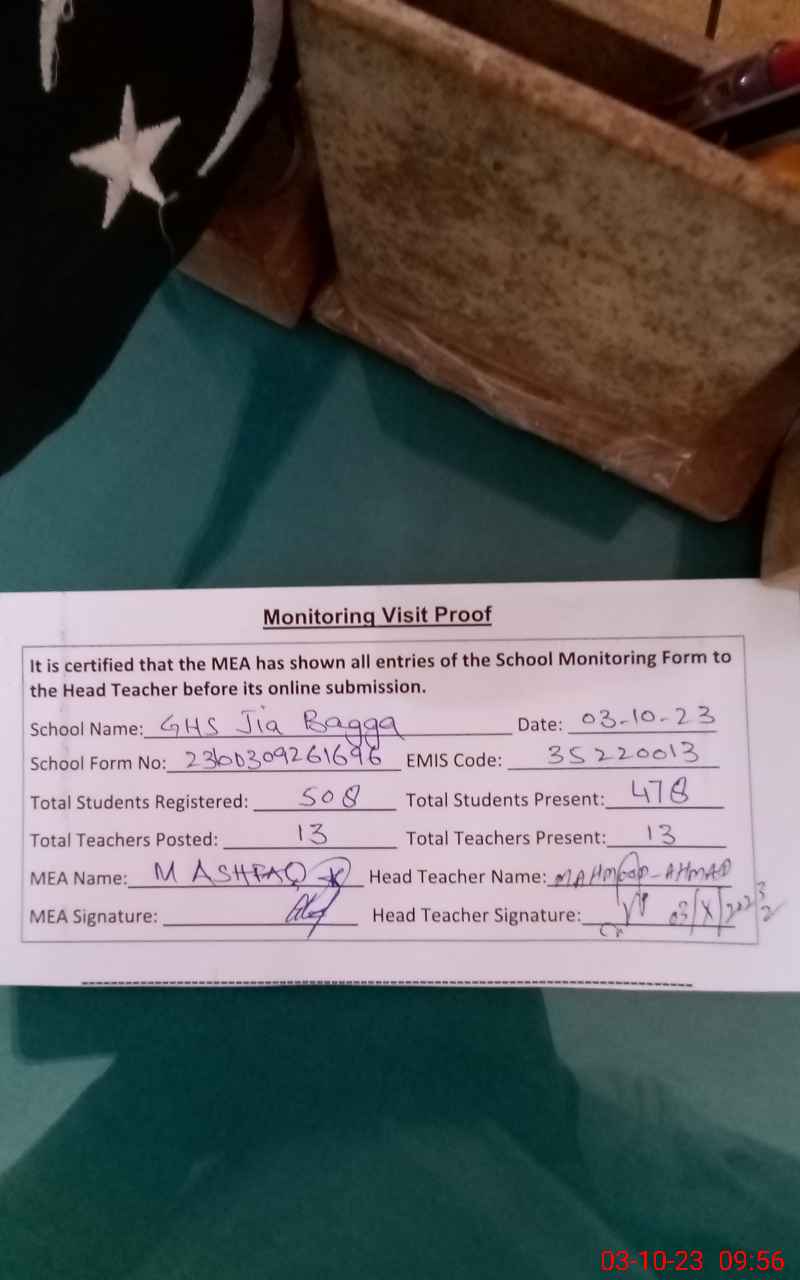 Monitoring Visit Proof
It is certified that the MEA has shown all entries of the School Monitoring Form to
the Head Teacher before its online submission.
School Name: GHS Jia Bagga Date: 03-10-23
School Form No: EMIS Code: 35220013
Total Students Registered: 508 Total Students Present: 478
Total Teachers Posted: 13 Total Teachers Present: 13
MEA Name: M ASHFAQ Head Teacher Name: MAHMOOD-AHMAD
MEA Signature: Head Teacher Signature: 03/X/2023
03-10-23 09:56